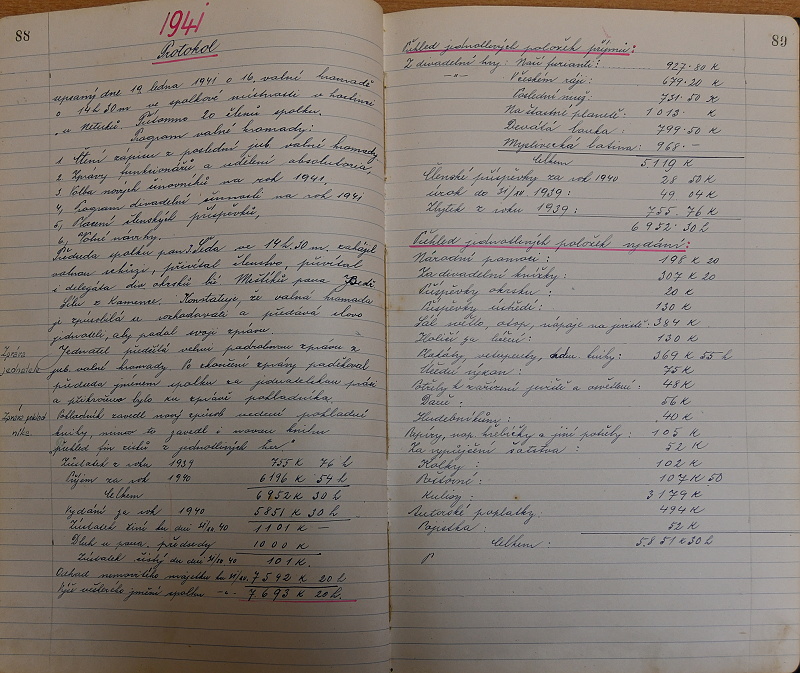 88
1941
Protokol
sepsaný dne 19 ledna 1941 o 16. valné hromadě
o 14 h 30 m ve spolkové místnosti v hostinci
u Netuků. Přítomno 20 členů spolku.
Program valné hromady:
1, Čtení zápisu z poslední jub. valné hromady
2, Zprávy funkcionářů a udělení absolutoria,
3, Volba nových činovníků na rok 1941,
4, Program divadelní činnosti na rok 1941
5, Placení členských příspěvků,
6, Volné návrhy.
Předseda spolku pan J. Síla ve 14 h. 30 m. zahájil
valnou schůzi, přivítal členstvo, přivítal
i delegáta div. okrsku bř. Mrštíků pana
z Kamence. Konstatuje, že valná hromada
je způsobilá se usnášeti a předává slovo
jednateli, aby podal svoji zprávu.
Zpráva jednatele
Jednatel předčítá velmi podrobnou zprávu z
jub. valné hromady. Po skončení zprávy poděkoval
předseda jménem spolku za jednatelskou práci
a přikročeno bylo ku zprávě pokladníka.
Zpráva pokladníka.
Pokladník zavedl nový způsob vedení pokladní
knihy, mimo to zavedl i novou knihu
přehled fin. zisků z jednotlivých her"
Zůstatek z roku 1939 755 K 76 h
Příjem za rok 1940 6196 K 54 h
Celkem 6952 K 30 h
Vydání za rok 1940 5851 K 30 h
Zůstatek činí ku dni 31/XII. 40 1101 K –
Dluh u pana předsedy 1000 K
Zůstatek čistý ku dni 31/XII 40 101 K.
Odhad nemovitého majetku ku 31/XII. 7592 K 20 h
Výše veškerého jmění spolku -"- 7.693 K 20 h.
89
Přehled jednotlivých položek příjmů:
Z divadelní hry: Naši furianti: 927.80 K
-"- V českém ráji: 679.20 K
Poslední muž: 731.50 K
Na šťastné planetě: 1013.- K
Devátá louka: 799.50 K
Myslivecká latina: 968.-
Celkem 5119 K
Členské příspěvky za rok 1940 28 50 K
úrok do 31/XII. 1939: 49 04 K
Zbytek z roku 1939: 755.76 K
6952.30 h
Přehled jednotlivých položek vydání:
Národní pomoci: 198 K 20
Za divadelní knížky: 307 K 20
Příspěvky okrsku: 20 K
Příspěvky ústředí: 130 K
Sál, světlo, otop, nápoje na jeviště: 384 K
Holiči za líčení: 130 K
Plakáty, vstupenky, knihy: 369 K 55 h
Úřední výkon: 75 K
Potřeby k zařízení jeviště a osvětlení: 48 K
Daně: 56 K
Hudebníkům: 40 K
Papíry, nap. hřebíčky a jiné potřeby: 105 K
Za vypůjčení šatstva: 52 K
Kolky: 102 K
Poštovné: 107 K 50
Kulisy: 3179 K
Autorské poplatky: 494 K
52 K
Celkem: 5851 K 30 h